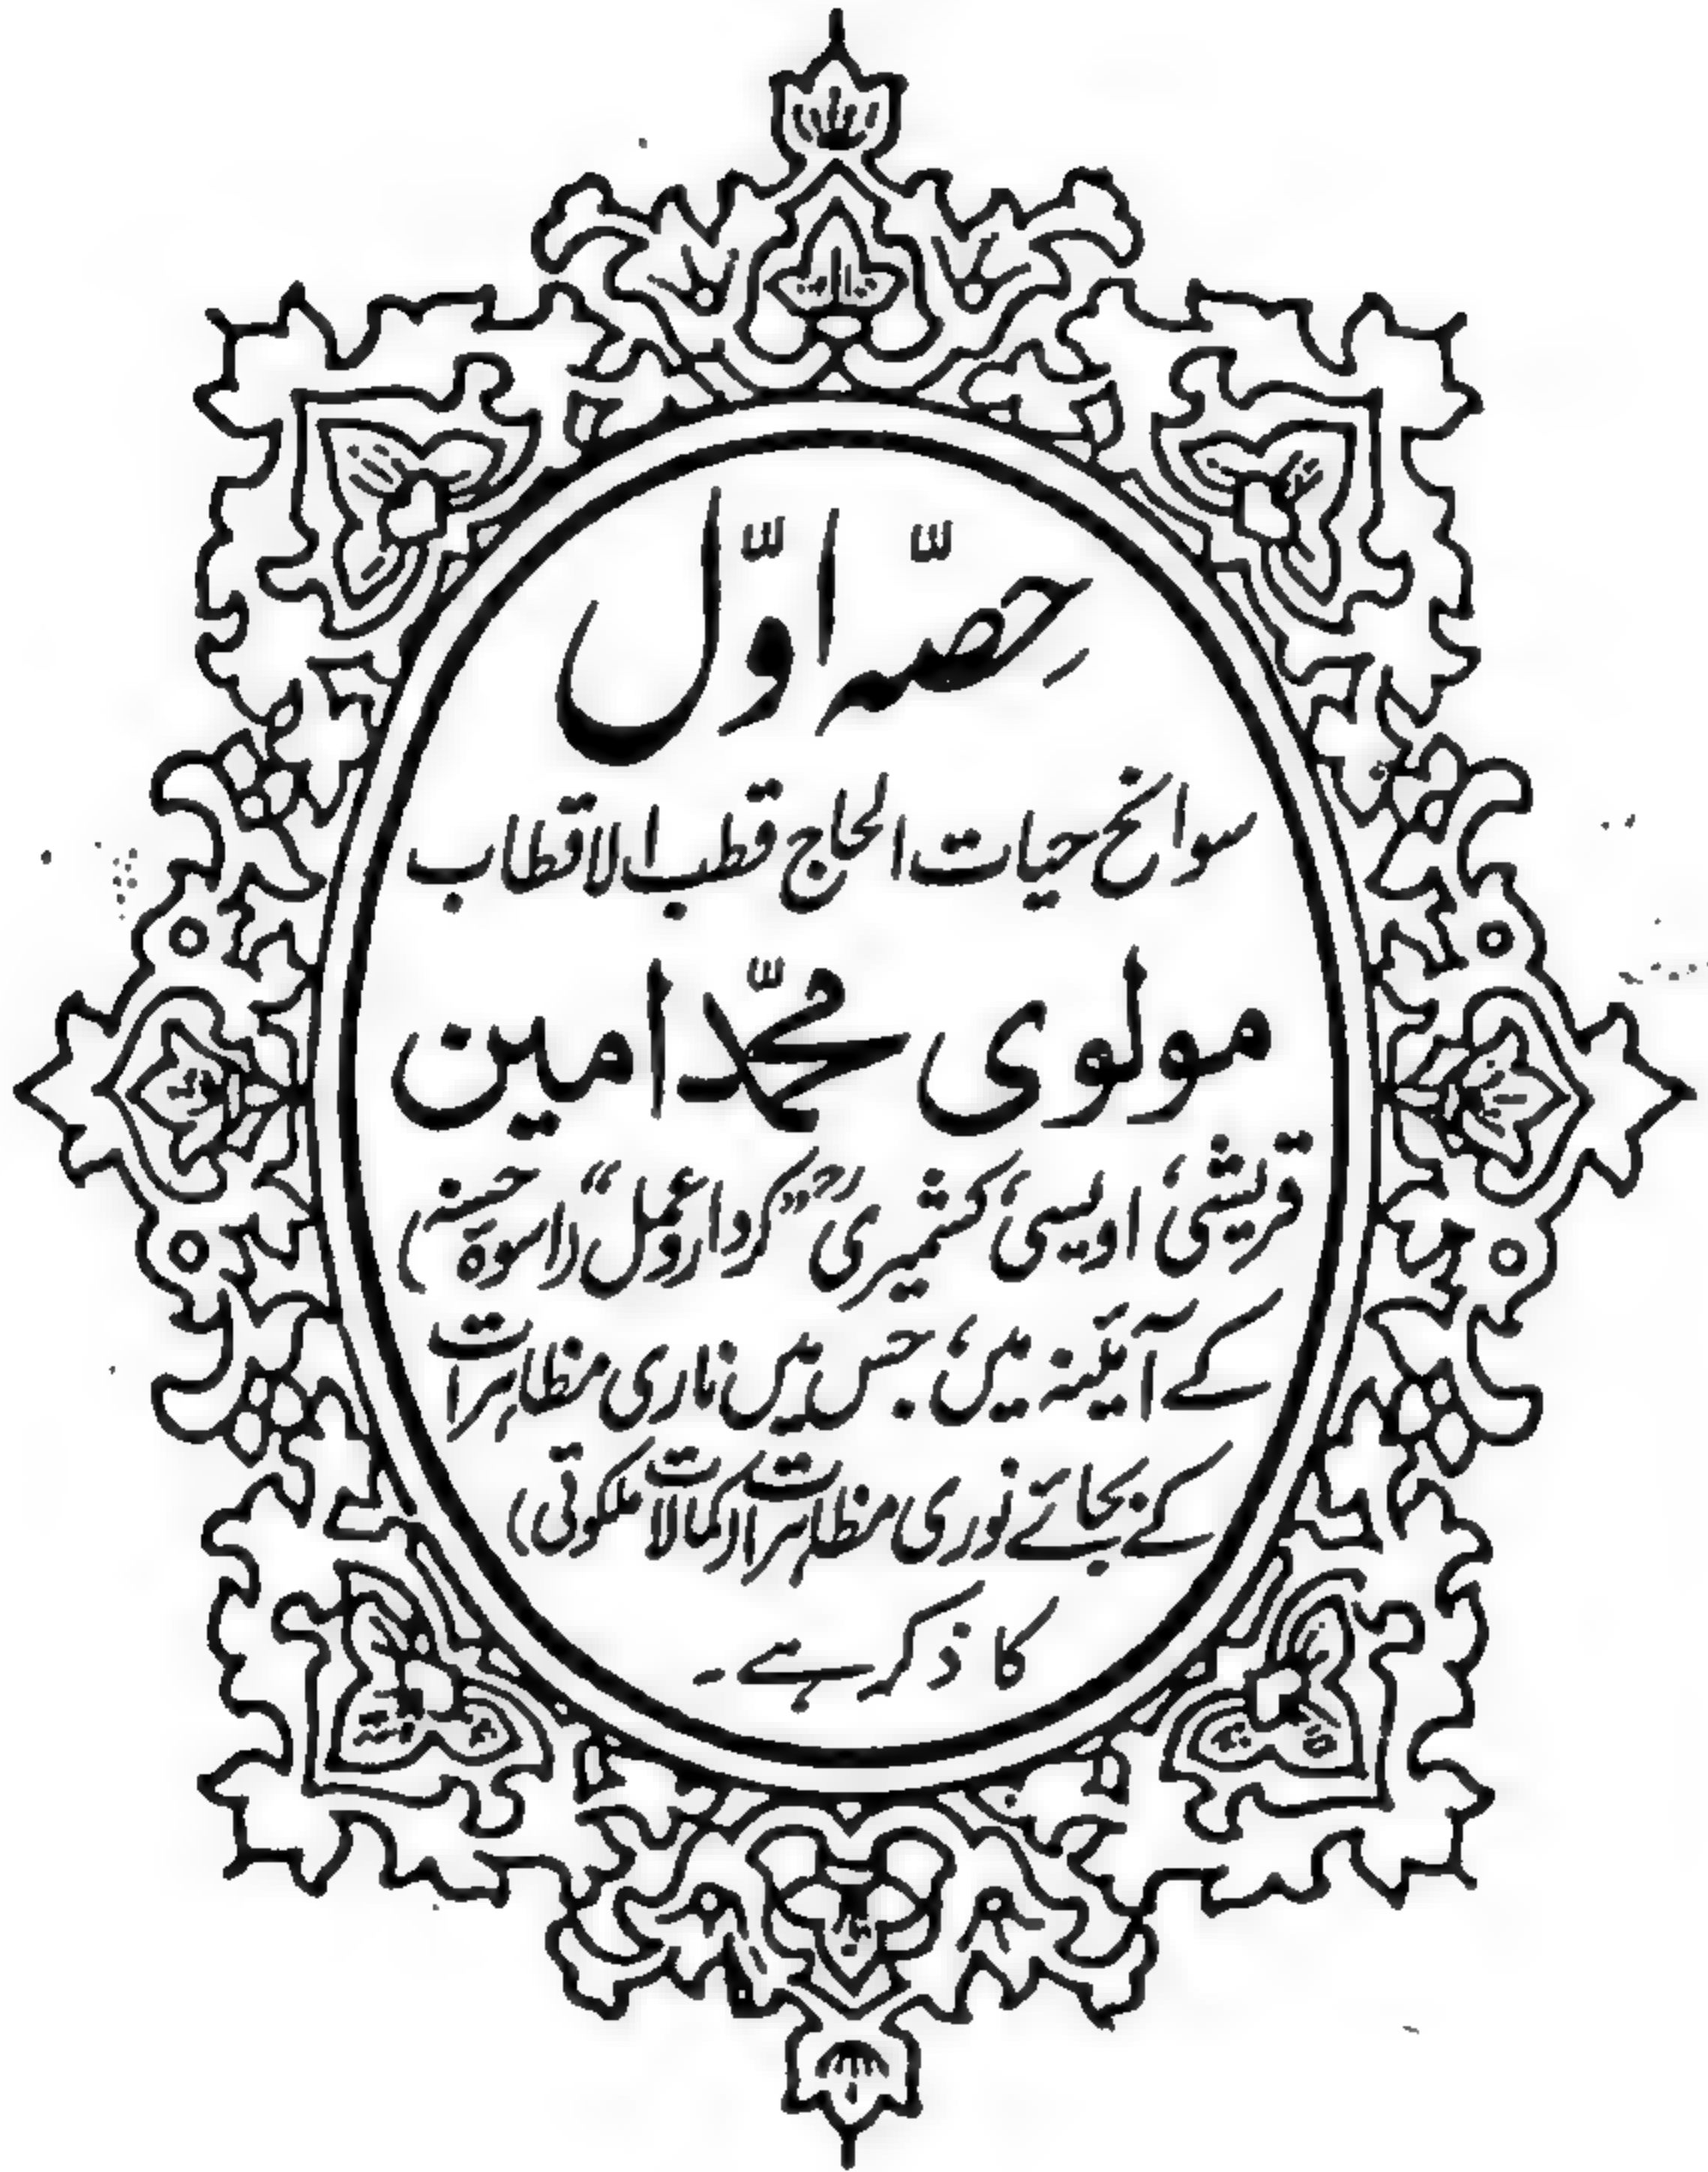 حِصّہ اوّل
سوانح حیات الحاج قطب الاقطاب
مولوی محمّد امین
قریشی، اویسی، کشمیری رح "کردار و عمل" (اسوۂ حسنہ)
کے آئینہ میں، جس میں ناری مظاہرات
کے بجائے نوری مظاہرات (کمالات ملکوتی)
کا ذکر ہے۔